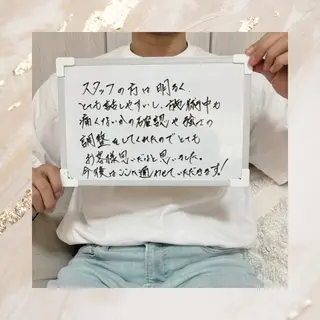 スタッフの方は明るく、
とても話しやすいし、施術中も
痛くないかの確認や強さの
調整をしてくれたのでとても
お客様思いだなと思いました。
今後はここへ通わせていただきます!